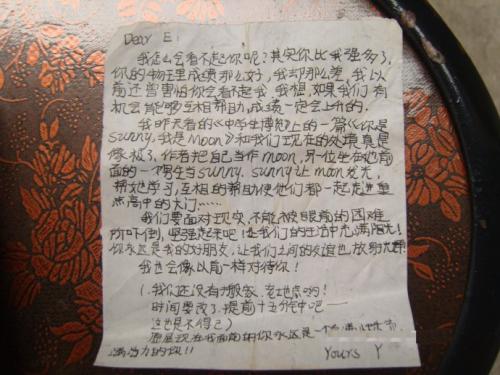 Dear E:
我怎么会看不起你呢?其实你比我强多了,
你的物理成绩那么好,我却那么差,我以
前还害怕你会看不起我,我想,如果我们有
机会能够互相帮助,成绩一定会上升的.
我昨天看的《中学生博览》上的一篇《你是
sunny,我是Moon》和我们现在的处境真是
像极了,作者把自己当作moon,另一位坐在她前
面的一个男生当sunny. sunny让moon发光,
帮她学习,互相的帮助使他们都一起走进重
点高中的大门……
我们要面对现实,不能被眼前的困难
所吓倒,坚强起来吧!让我们的生活中充满阳光!
你永远是我的好朋友,让我们之间的友谊也放射光辉
我也会像以前一样对待你!
(.我们还没有搬家,老地点的!
时间要改了.提前十五分钟吧——
这也是不得已)
现在我面前的你永远是一个
满活力的你!!
Yours Y